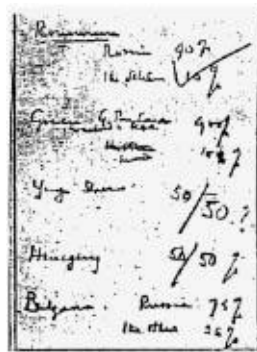 Roumania
Russia 90%
The others 10%
Greece G. Britain 90%
10%
Yugo Slavia 50/50 %
Hungary 50/50 %
Bulgaria Russia 75%
The others 25%